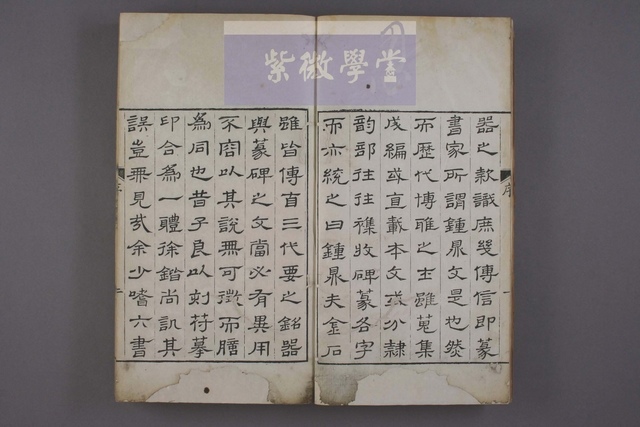 紫微學堂
器之款識庶幾傳信即篆
書家所謂鍾鼎文是也然
而歷代博雅之士雖蒐集
成編或直載本文或分隸
韵部往往襍收碑篆各字
而亦統之曰鍾鼎夫金石
雖皆傳自三代要之銘器
與篆碑之文當必有異用
不容以其說無可徵而謄
為同也昔子良以刻符摹
印合為一體徐鍇尚訊其
誤豈無見哉余少嗜六書
序
一
序